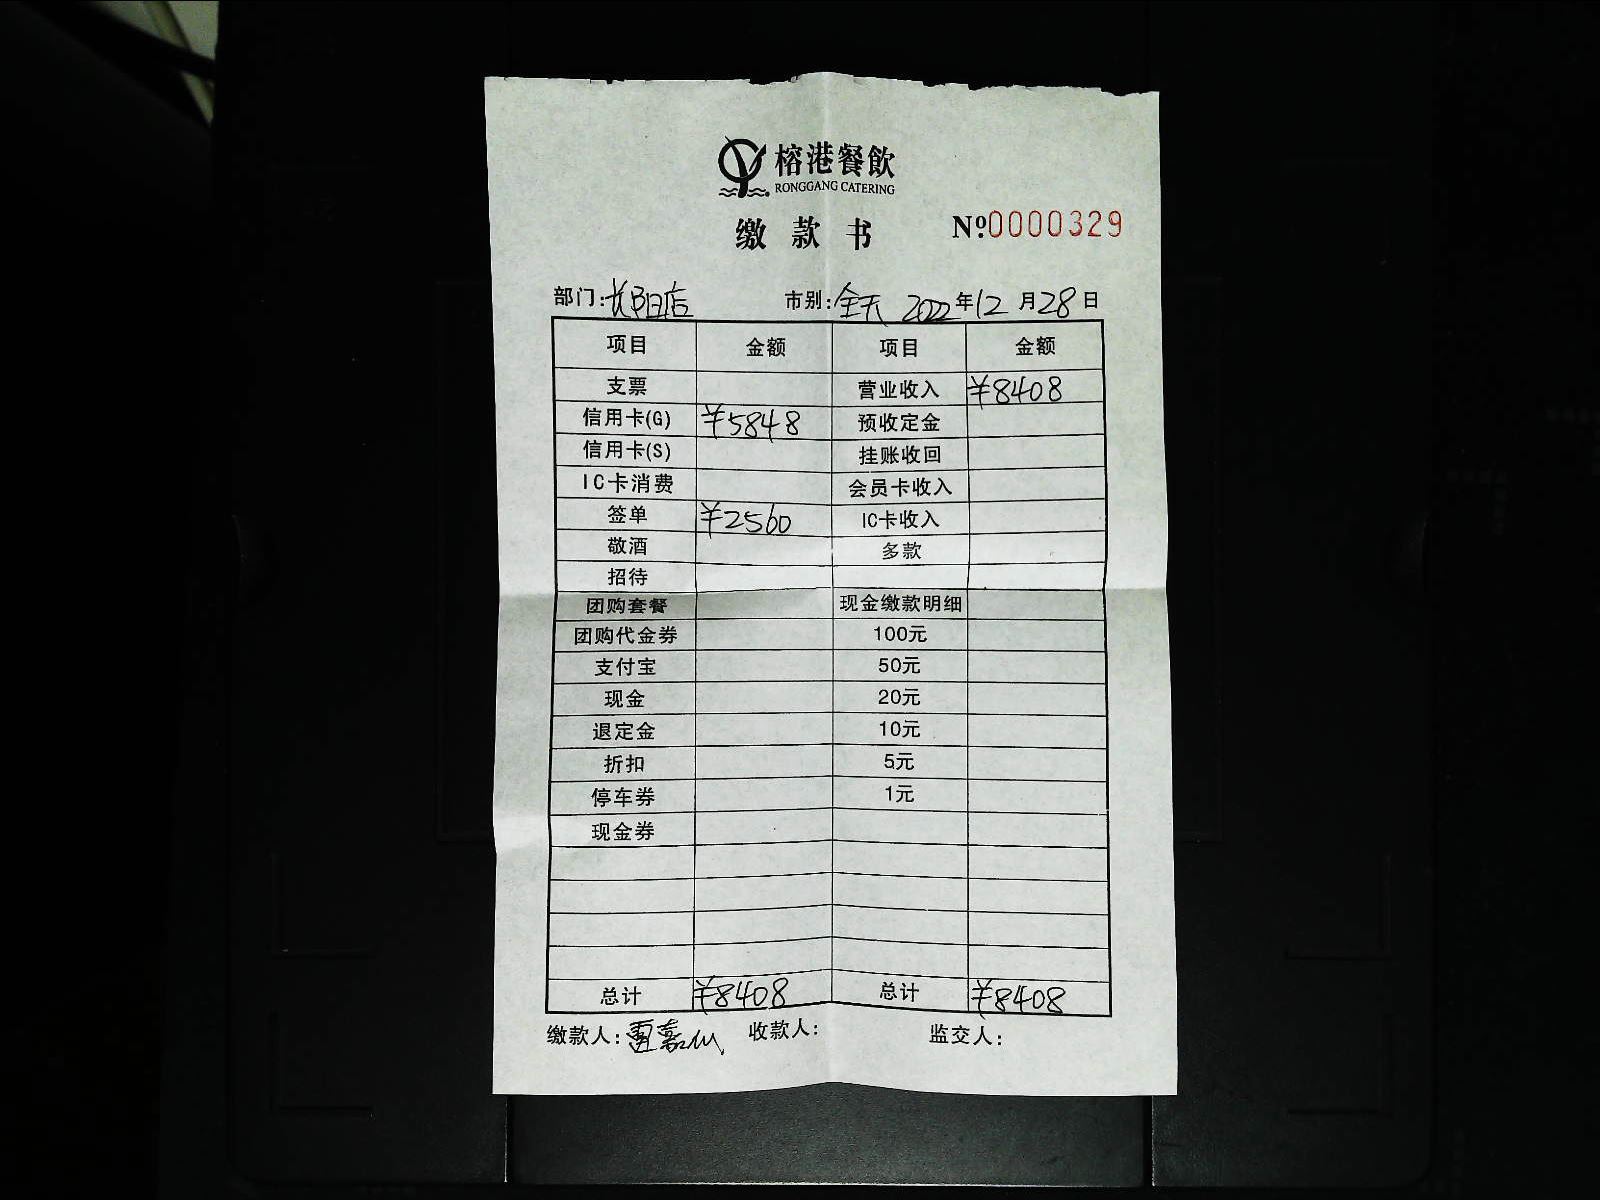 榕港餐飲
RONGGANG CATERING
缴款书 №0000329
部门:长阳店 市别:全天 2022年12月28日
项目 金额 项目 金额
支票 营业收入 ¥8408
信用卡(G) ¥5848 预收定金
信用卡(S) 挂账收回
IC卡消费 会员卡收入
签单 ¥2560 IC卡收入
敬酒 多款
招待
团购套餐 现金缴款明细
团购代金券 100元
支付宝 50元
现金 20元
退定金 10元
折扣 5元
停车券 1元
现金券
总计 ¥8408 总计 ¥8408
缴款人: 收款人: 监交人: